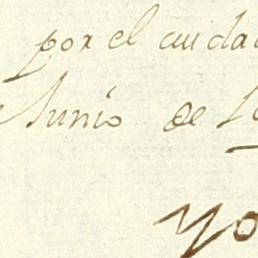 por el cuida
Junio de 1
Yo